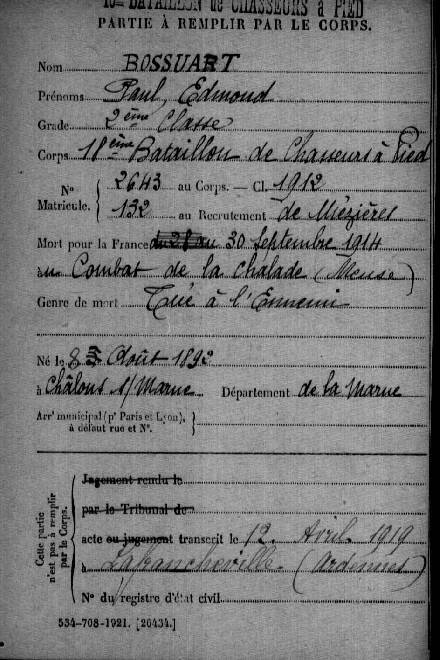 18me BATAILLON de CHASSEURS à PIED
PARTIE À REMPLIR PAR LE CORPS.
Nom BOSSUART
Prénoms Paul, Edmond
Grade 2ème Classe
Corps 18ème Bataillon de Chasseurs à Pied
N° Matricule. { 2643 au Corps. — Cl. 1912
132 au Recrutement de Mézières
Mort pour la France du 28 au 30 Septembre 1914
au Combat de la Chalade (Meuse)
Genre de mort Tué à l'Ennemi
Né le 8 Août 1892
à Châlons s/Marne Département de la Marne
Arrt municipal (pr Paris et Lyon), }
à défaut rue et N°.
Cette partie n'est pas à remplir par le Corps.
Jugement rendu le
par le Tribunal de
acte ou jugement transcrit le 12 Avril 1919
à Lafrancheville (Ardennes)
N° du registre d'état civil
534-708-1921. [26434.]